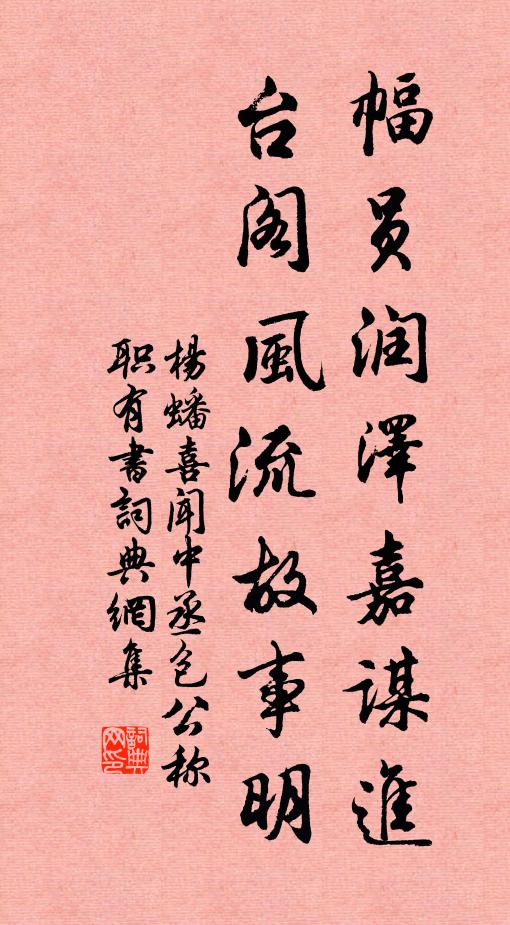 幅员润澤嘉谋進
台阁風流故事明
杨蟠喜闻中丞包公称
职有书詞典網集
詞典网印